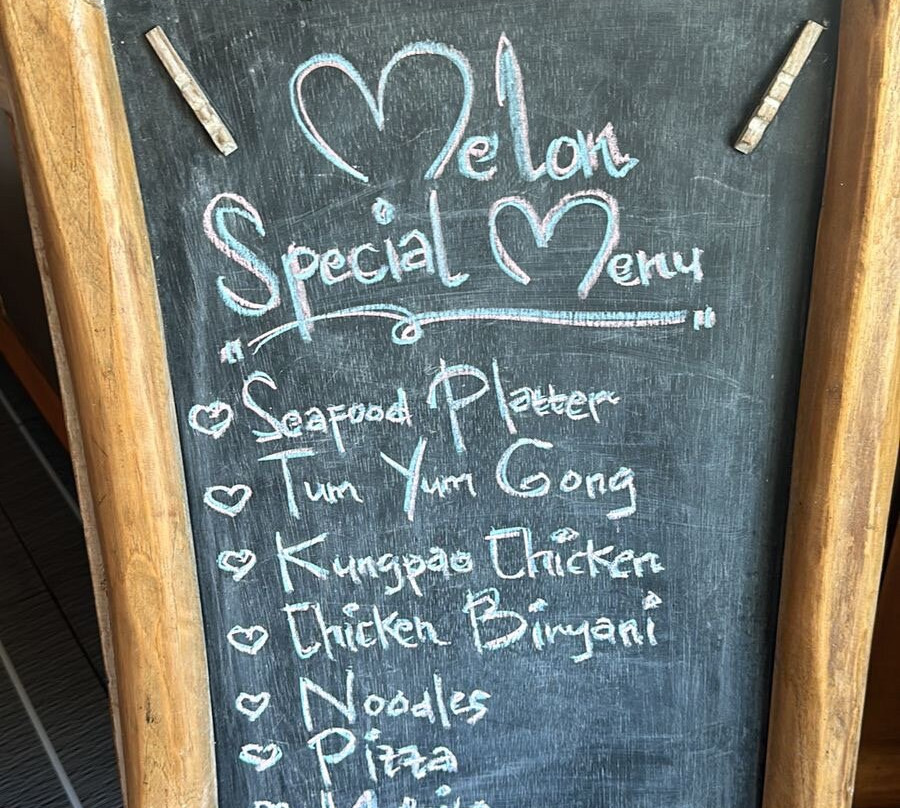 Melon
Special Menu
Seafood Platter
Tum Yum Gong
Kungpao Chicken
Chicken Biryani
Noodles
Pizza